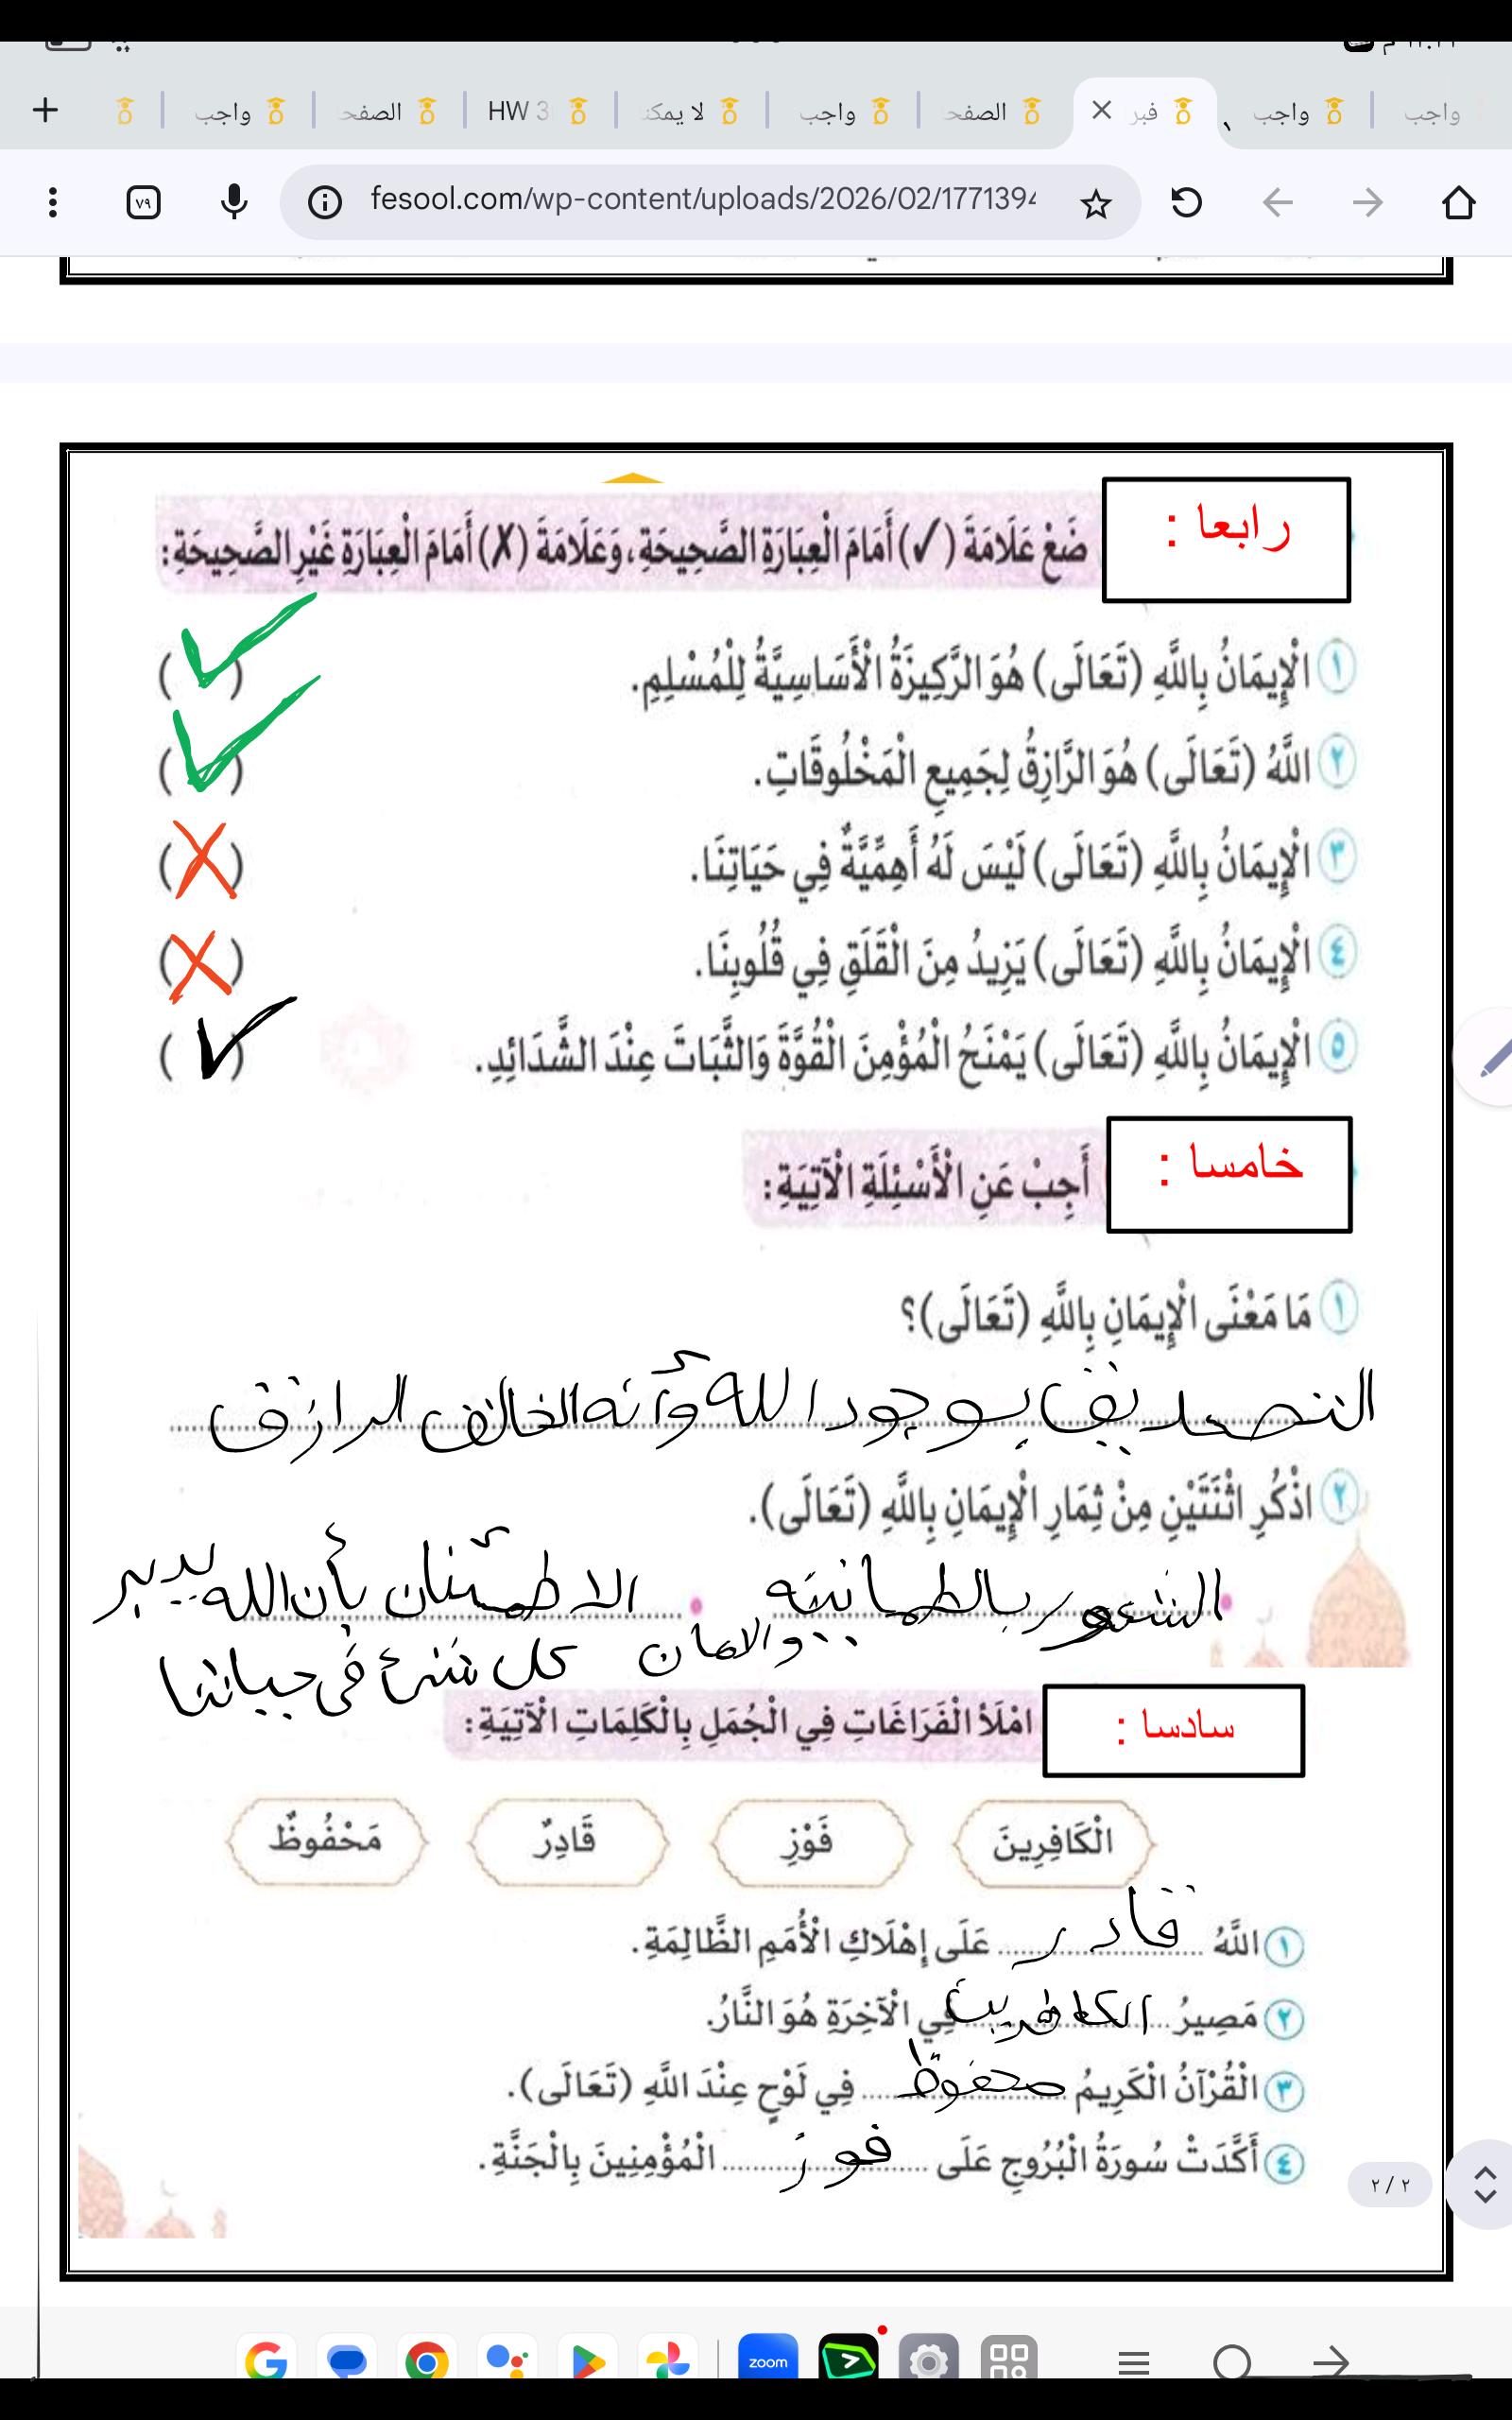 واجب
واجب
فبر
الصفح
واجب
لا يمكن
HW 3
الصفح
واجب
٧٩
fesool.com/wp-content/uploads/2026/02/177139
رابعا :
ضَعْ عَلَامَةَ (✓) أَمَامَ الْعِبَارَةِ الصَّحِيحَةِ، وَعَلَامَةَ (✗) أَمَامَ الْعِبَارَةِ غَيْرِ الصَّحِيحَةِ:
١ الْإِيمَانُ بِاللَّهِ (تَعَالَى) هُوَ الرَّكِيزَةُ الْأَسَاسِيَّةُ لِلْمُسْلِمِ. (✓)
٢ اللَّهُ (تَعَالَى) هُوَ الرَّازِقُ لِجَمِيعِ الْمَخْلُوقَاتِ. (✓)
٣ الْإِيمَانُ بِاللَّهِ (تَعَالَى) لَيْسَ لَهُ أَهَمِّيَّةٌ فِي حَيَاتِنَا. (✗)
٤ الْإِيمَانُ بِاللَّهِ (تَعَالَى) يَزِيدُ مِنَ الْقَلَقِ فِي قُلُوبِنَا. (✗)
٥ الْإِيمَانُ بِاللَّهِ (تَعَالَى) يَمْنَحُ الْمُؤْمِنَ الْقُوَّةَ وَالثَّبَاتَ عِنْدَ الشَّدَائِدِ. (✓)
خامسا :
أَجِبْ عَنِ الْأَسْئِلَةِ الْآتِيَةِ:
١ مَا مَعْنَى الْإِيمَانِ بِاللَّهِ (تَعَالَى)؟
التصديق بوجود الله وأنه الخالق الرازق
٢ اذْكُرِ اثْنَتَيْنِ مِنْ ثِمَارِ الْإِيمَانِ بِاللَّهِ (تَعَالَى).
الشعور بالطمانينه والامان
الاطمئنان بأن الله يدبر كل شئ في حياتنا
سادسا :
امْلَأْ الْفَرَاغَاتِ فِي الْجُمَلِ بِالْكَلِمَاتِ الْآتِيَةِ:
الْكَافِرِينَ فَوْزِ قَادِرٌ مَحْفُوظٌ
١ اللَّهُ قادر عَلَى إِهْلَاكِ الْأُمَمِ الظَّالِمَةِ.
٢ مَصِيرُ الكافرين فِي الْآخِرَةِ هُوَ النَّارُ.
٣ الْقُرْآنُ الْكَرِيمُ محفوظ فِي لَوْحٍ عِنْدَ اللَّهِ (تَعَالَى).
٤ أَكَّدَتْ سُورَةُ الْبُرُوجِ عَلَى فوز الْمُؤْمِنِينَ بِالْجَنَّةِ.
٢ / ٢
zoom